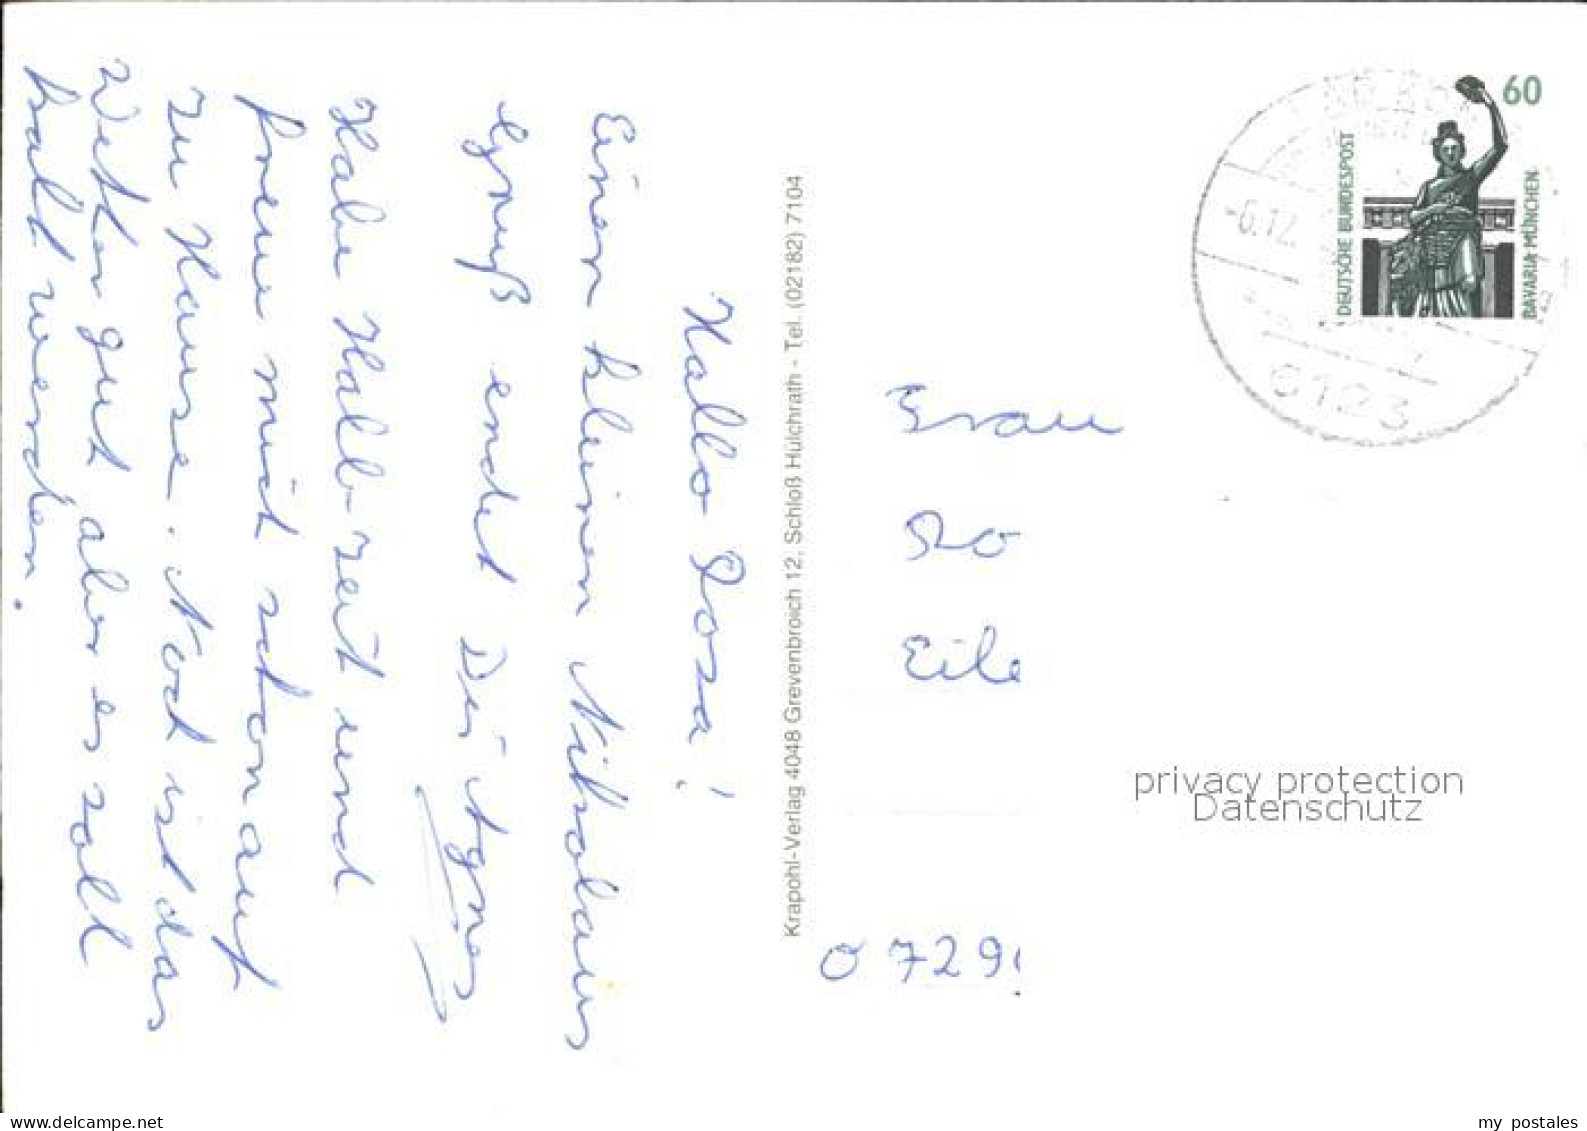 Hallo Rosa!
Einen kleinen Nikolaus
Gruß endet Dir Agnes
Habe Halb-Zeit und
freue mich schon auf
zu Hause. Noch ist das
Wetter gut, aber es soll
bald werden.
Krapohl-Verlag 4048 Grevenbroich 12, Schloß Hülchrath - Tel. (02182) 7104
60
DEUTSCHE BUNDESPOST
BAVARIA MÜNCHEN
-6.12.
6123
Frau
Ro
Eile
O 729
privacy protection
Datenschutz
www.delcampe.net
my_postales